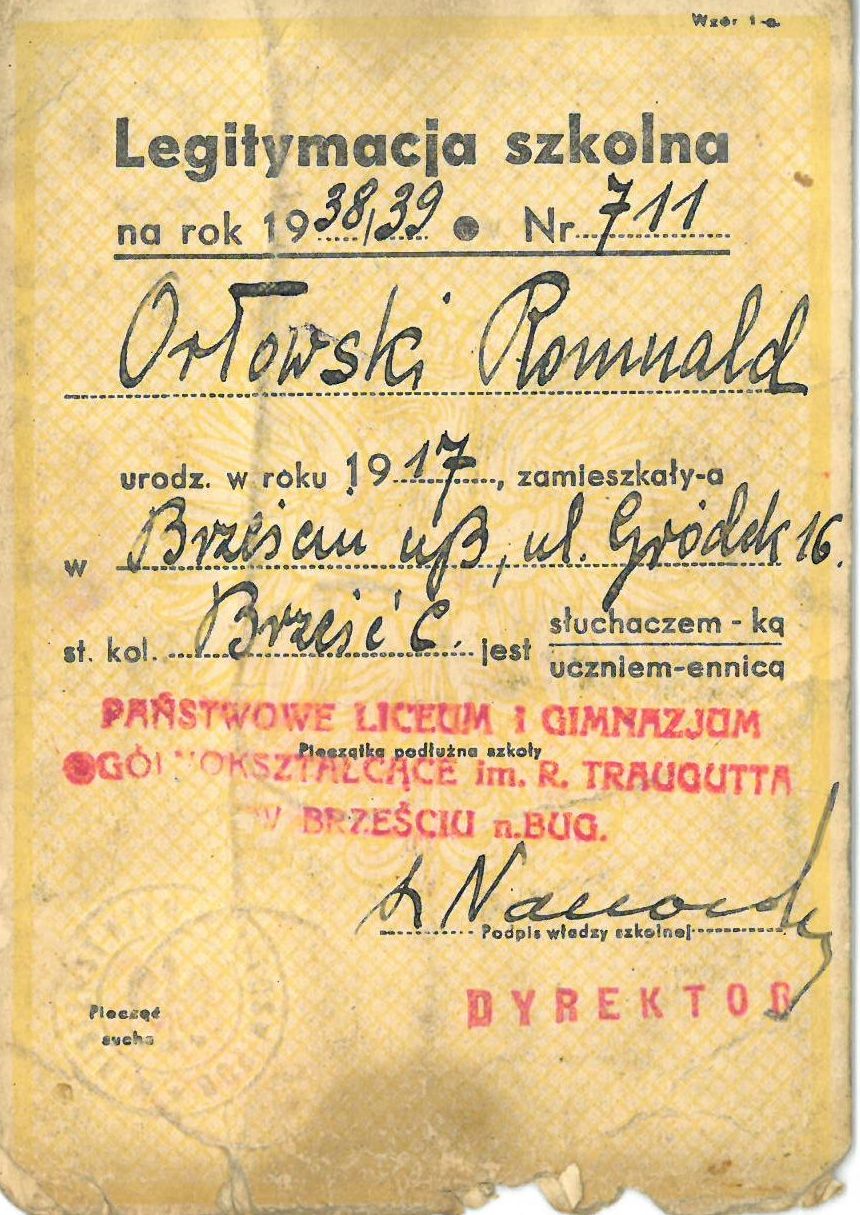 Wzór 1-a.
Legitymacja szkolna
na rok 1938/39 • Nr 711
Orłowski Romuald
urodz. w roku 1917, zamieszkały-a
w Brześciu n/B, ul. Gródek 16.
st. kol. Brześć C. jest słuchaczem - ką
uczniem-ennicą
PAŃSTWOWE LICEUM i GIMNAZJUM
Pieczątka podłużna szkoły
OGÓLNOKSZTAŁCĄCE im. R. TRAUGUTTA
W BRZEŚCIU n.BUG.
Podpis władzy szkolnej
DYREKTOR
Pieczęć
sucha